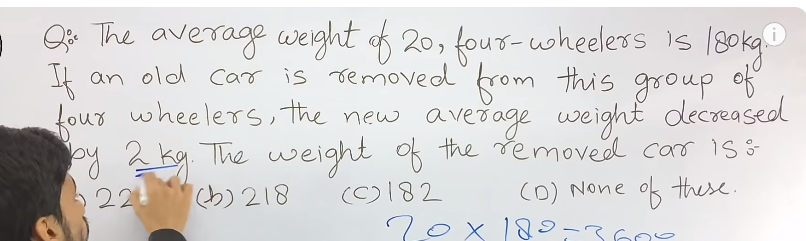 Q:: The average weight of 20, four-wheelers is 180kg.
If an old car is removed from this group of
four wheelers, the new average weight decreased
by 2 kg. The weight of the removed car is :-
(b) 218 (C) 182 (D) None of these.
20 × 180 = 3600